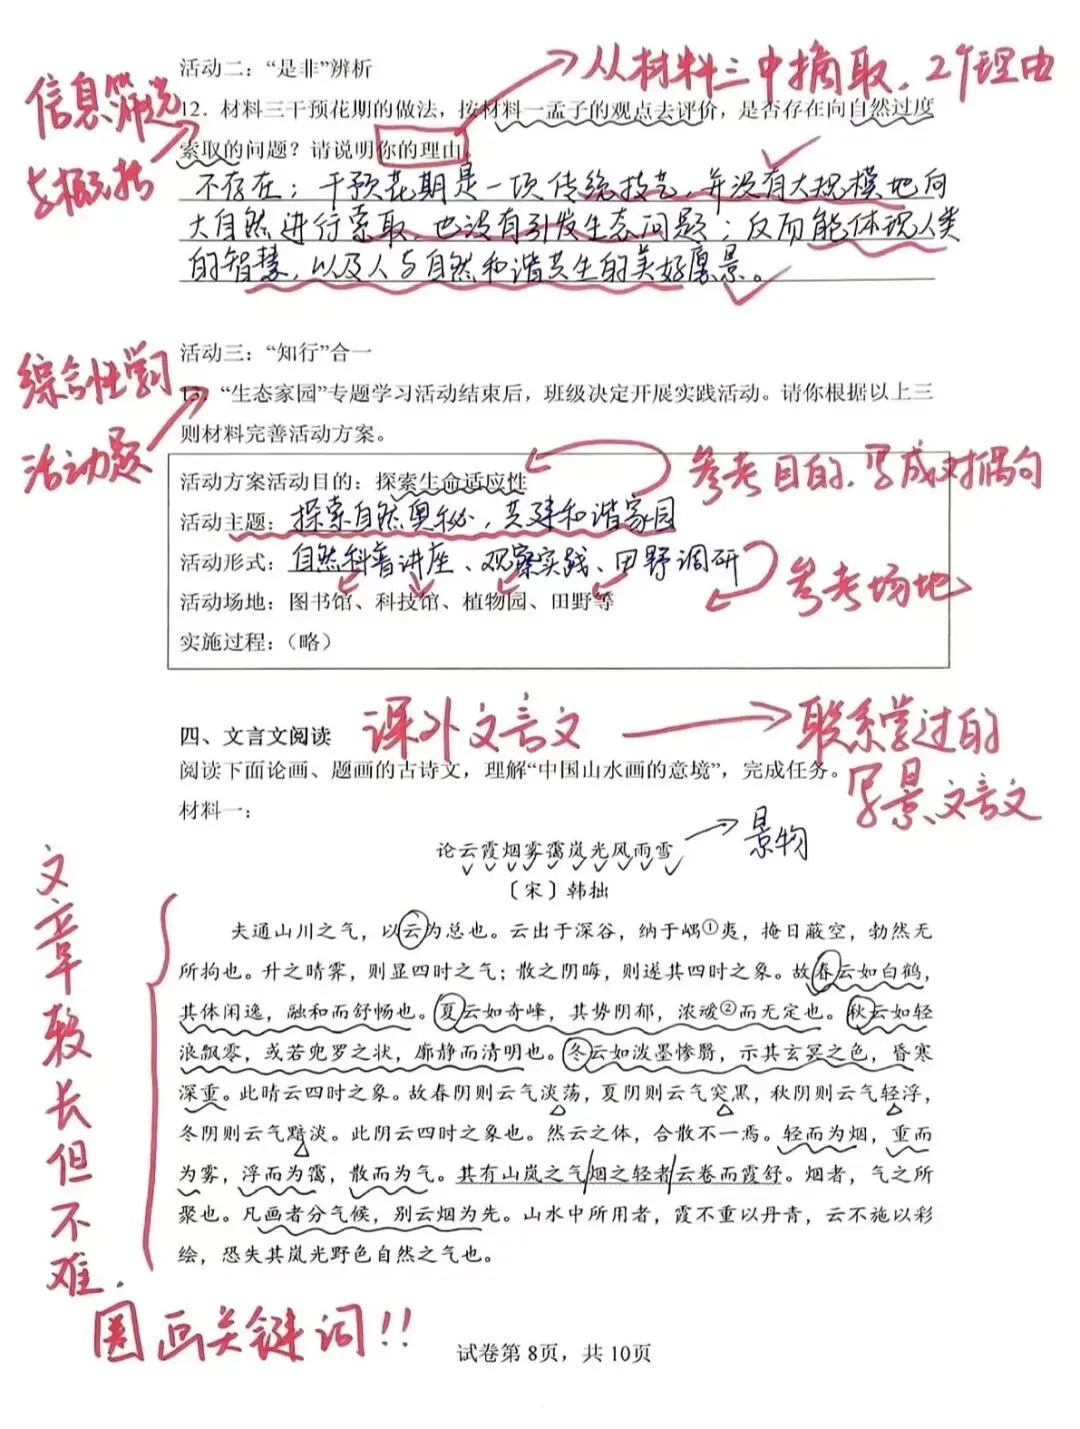 活动二：“是非”辨析
从材料三中摘取，2个理由
信息筛选
与概括
12．材料三干预花期的做法，按材料一孟子的观点去评价，是否存在向自然过度
索取的问题？请说明你的理由。
不存在；干预花期是一项传统技艺，并没有大规模地向
大自然进行索取，也没有引发生态问题；反而能体现人类
的智慧，以及人与自然和谐共生的美好愿景。
活动三：“知行”合一
综合性学习
活动题
13．“生态家园”专题学习活动结束后，班级决定开展实践活动。请你根据以上三
则材料完善活动方案。
活动方案活动目的：探索生命适应性
参考目的，写成对偶句
活动主题：探索自然奥秘，共建和谐家园
活动形式：自然科普讲座、观察实践、田野调研
参考场地
活动场地：图书馆、科技馆、植物园、田野等
实施过程：（略）
四、文言文阅读
课外文言文
联系学过的
写景文言文
阅读下面论画、题画的古诗文，理解“中国山水画的意境”，完成任务。
材料一：
论云霞烟雾霭岚光风雨雪
景物
〔宋〕韩拙
夫通山川之气，以云为总也。云出于深谷，纳于嵎①夷，掩日蔽空，勃然无
所拘也。升之晴霁，则显四时之气；散之阴晦，则遂其四时之象。故春云如白鹤，
其体闲逸，融和而舒畅也。夏云如奇峰，其势阴郁，浓叆②而无定也。秋云如轻
浪飘零，或若兜罗之状，廓静而清明也。冬云如泼墨惨翳，示其玄冥之色，昏寒
深重。此晴云四时之象。故春阴则云气淡荡，夏阴则云气突黑，秋阴则云气轻浮，
冬阴则云气黯淡。此阴云四时之象也。然云之体，合散不一焉。轻而为烟，重而
为雾，浮而为霭，散而为气。其有山岚之气烟之轻者云卷而霞舒。烟者，气之所
聚也。凡画者分气候，别云烟为先。山水中所用者，霞不重以丹青，云不施以彩
绘，恐失其岚光野色自然之气也。
文章较长但不难．
圈画关键词!!
试卷第 8页，共 10页